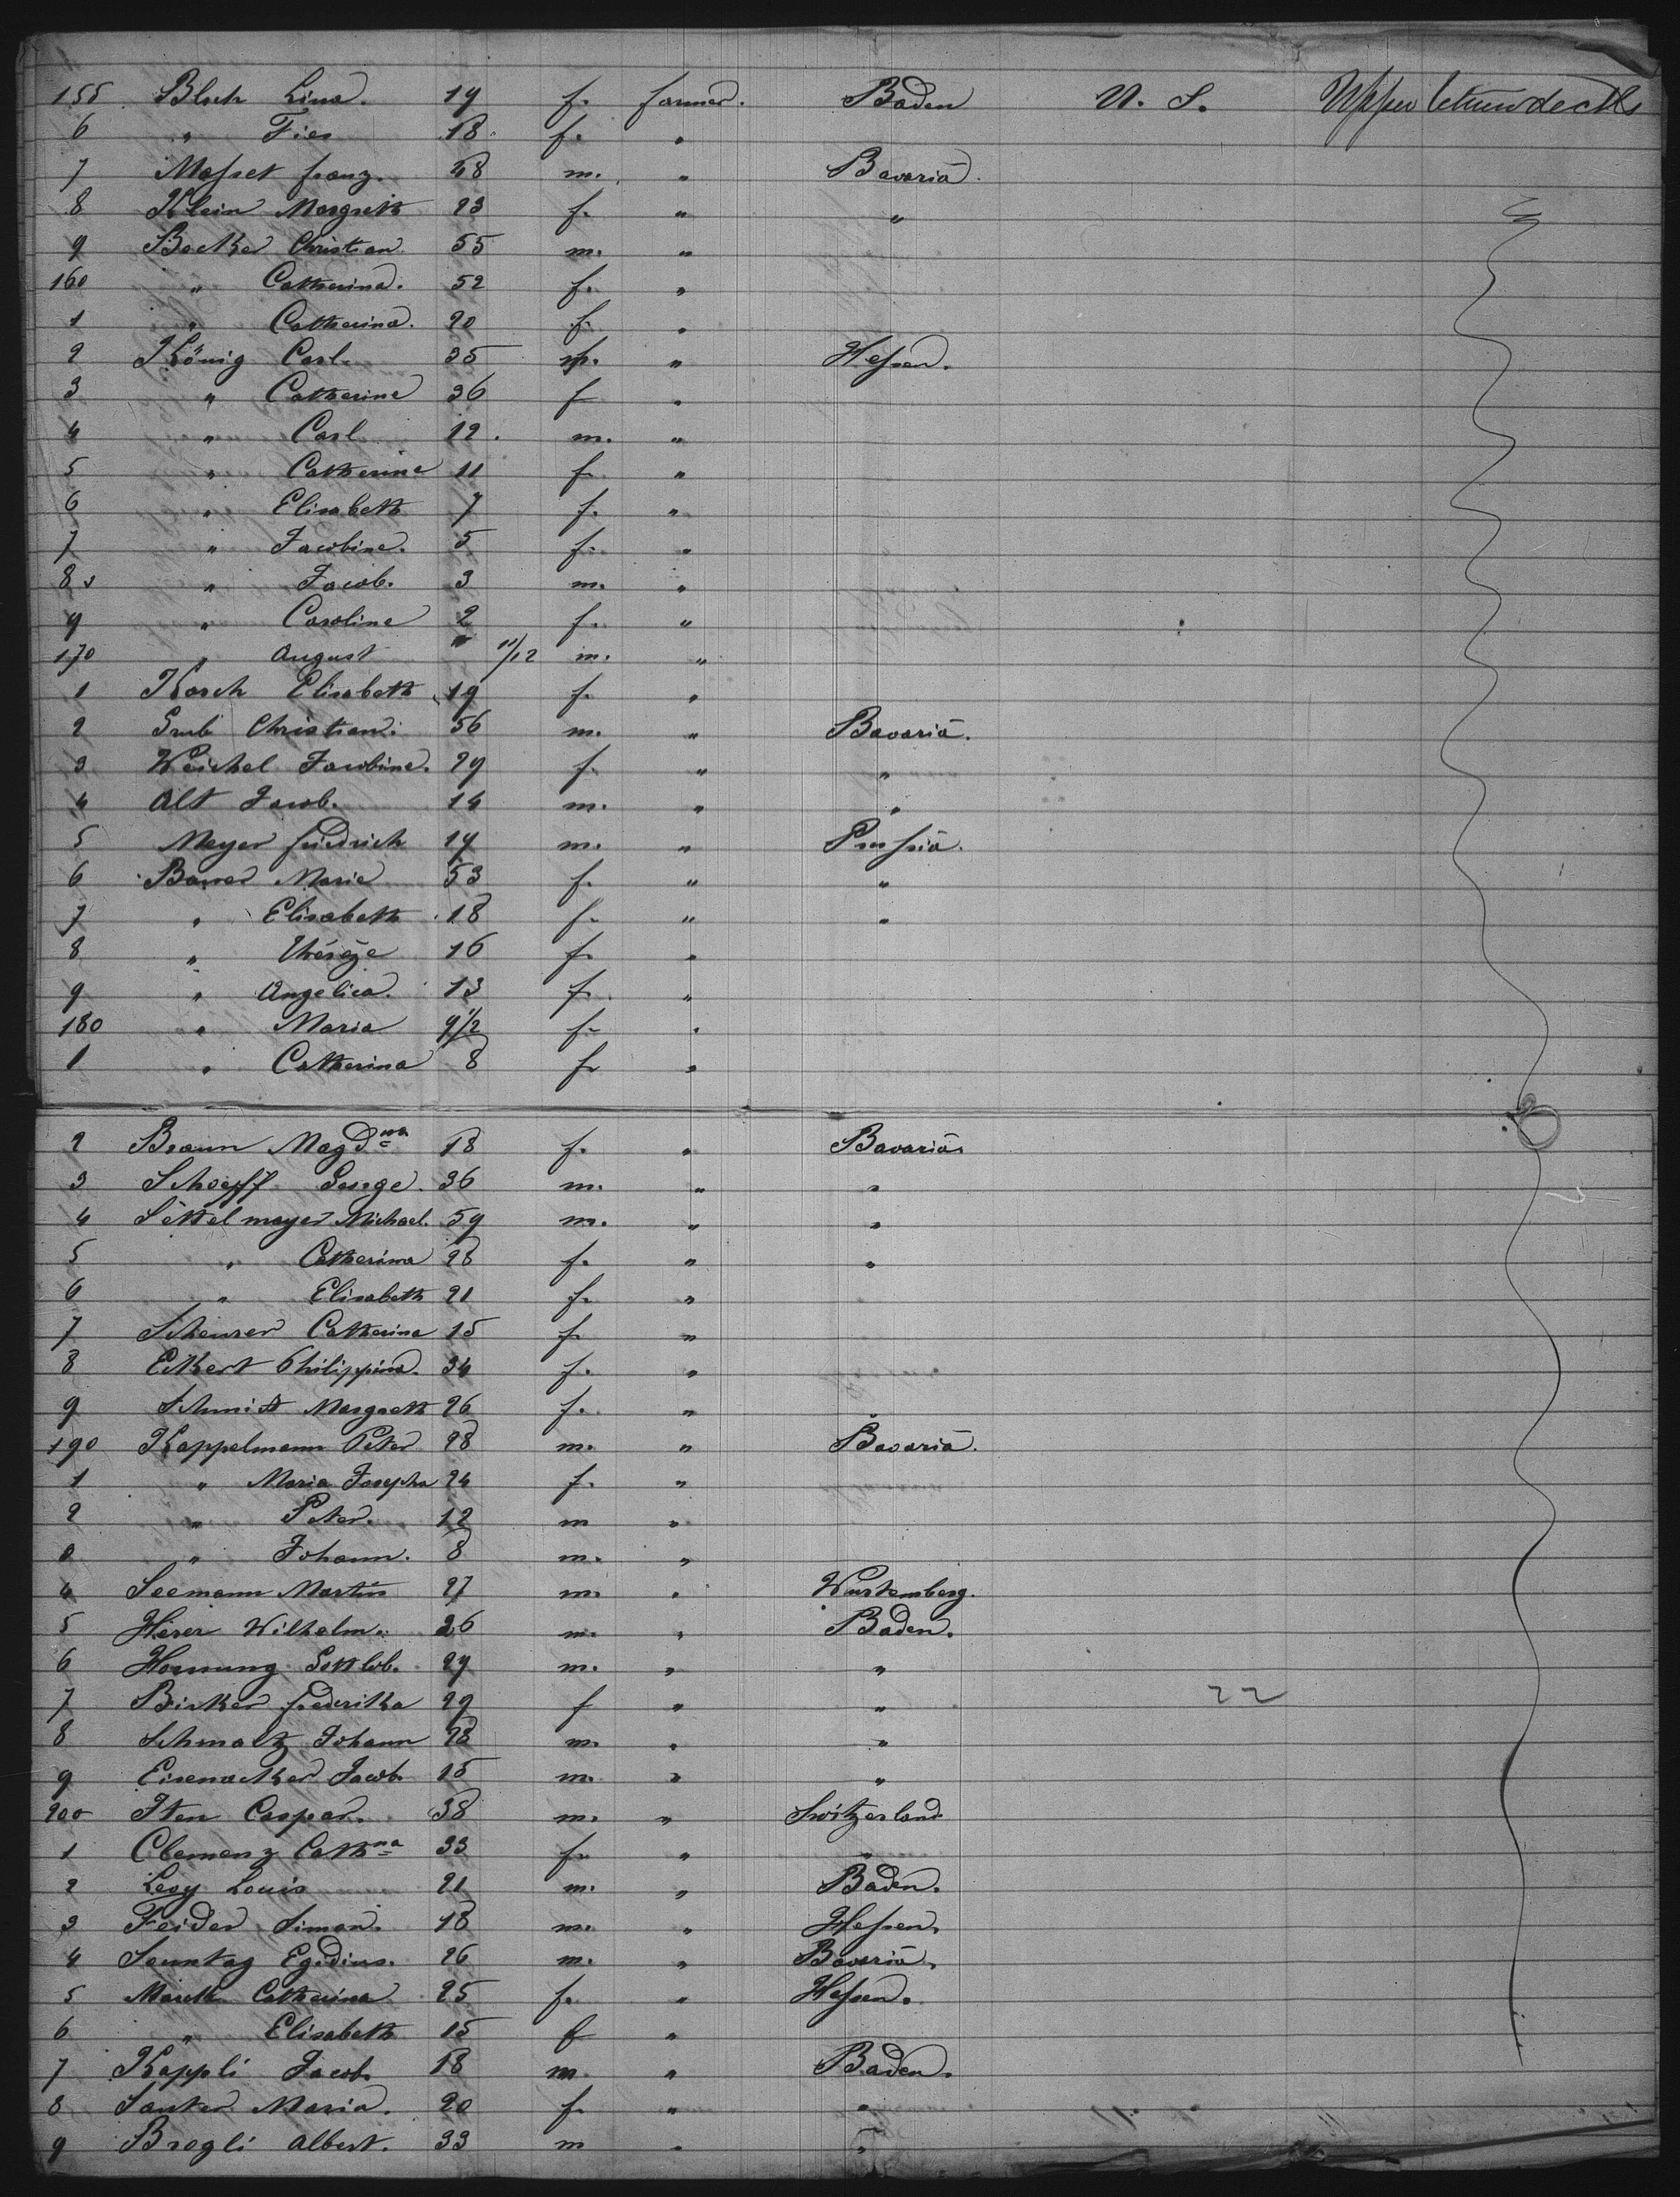 155 Bloch Lina. 19 f. farmer. Baden U. S. Upper
6 " Fies 18 f. "
7 Mosset franz. 48 m. " Bavaria.
8 Klein Margreth 23 f. " "
9 Becker Christian 55 m. "
160 " Catherina. 52 f. "
1 " Catherina. 20 f. "
2 König Carl. 35 m. " Hessen.
3 " Catherine 36 f "
4 " Carl 12. m. "
5 " Catherine 11 f. "
6 " Elisabeth 7 f. "
7 " Jacobine. 5 f. "
8 " Jacob. 3 m. "
9 " Caroline 2 f. "
170 " August " 11/12 m. "
1 Korch Elisabeth 19 f. "
2 Grub Christian. 56 m. " Bavaria.
3 Weichel Jacobine. 29 f. " "
4 Alt Jacob. 14 m. " "
5 Meyer friedrich 19 m. " Prussia.
6 Bauer Marie 53 f. " "
7 " Elisabeth 18 f. " "
8 " 16 f. "
9 " Angelica. 13 f. "
180 " Maria 9 1/2 f. "
1 " Catherina 8 f. "
2 Braun Magdna 18 f. " Bavaria
3 Schoeff George. 36 m. " "
4 Settelmayer Michael. 59 m. " "
5 " Catherina 28 f. " "
6 " Elisabeth 21 f. "
7 Scheurer Catherina 15 f. "
8 Eckert Philippina. 34 f. "
9 Schmidt Margreth 26 f. "
190 Kappelmann Peter 28 m. " Bavaria.
1 " Maria Josepha 24 f. "
2 " Peter. 12 m "
3 " Johann. 8 m. "
4 Seemann Martin 27 m. " Wurtemberg.
5 Hirer Wilhelm. 26 m. " Baden.
6 Hornung Gottlob. 29 m. " "
7 Binker frederika 29 f " " 22
8 Schmaltz Johann 28 m. " "
9 Eisenacker Jacob 15 m. " "
200 Iten Caspar. 38 m. " Switzerland
1 Clemenz Cathna 33 f. " "
2 Levy Louis 21 m. " Baden.
3 Feider Simon. 18 m. " Hessen.
4 Sonntag Egidius. 26 m. " Bavaria.
5 Marth Catherina 25 f. " Hessen.
6 " Elisabeth 15 f "
7 Kappli Jacob. 18 m. " Baden.
8 Santer Maria. 20 f. " "
9 Brogli Albert. 33 m " "